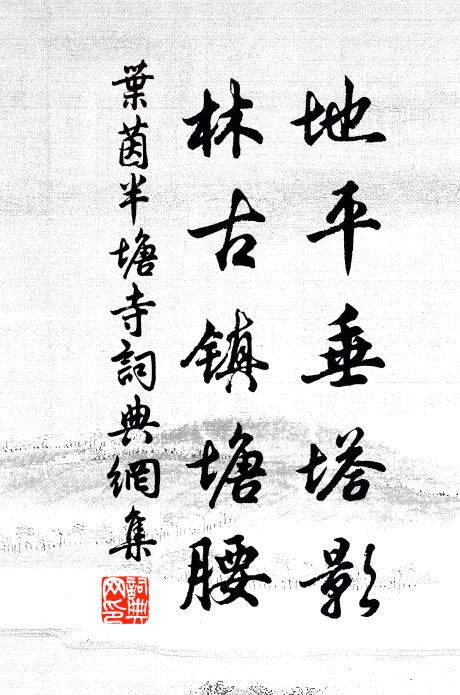 地平垂塔影
林古鎮塘腰
葉茵半塘寺詞典網集
詞典网印